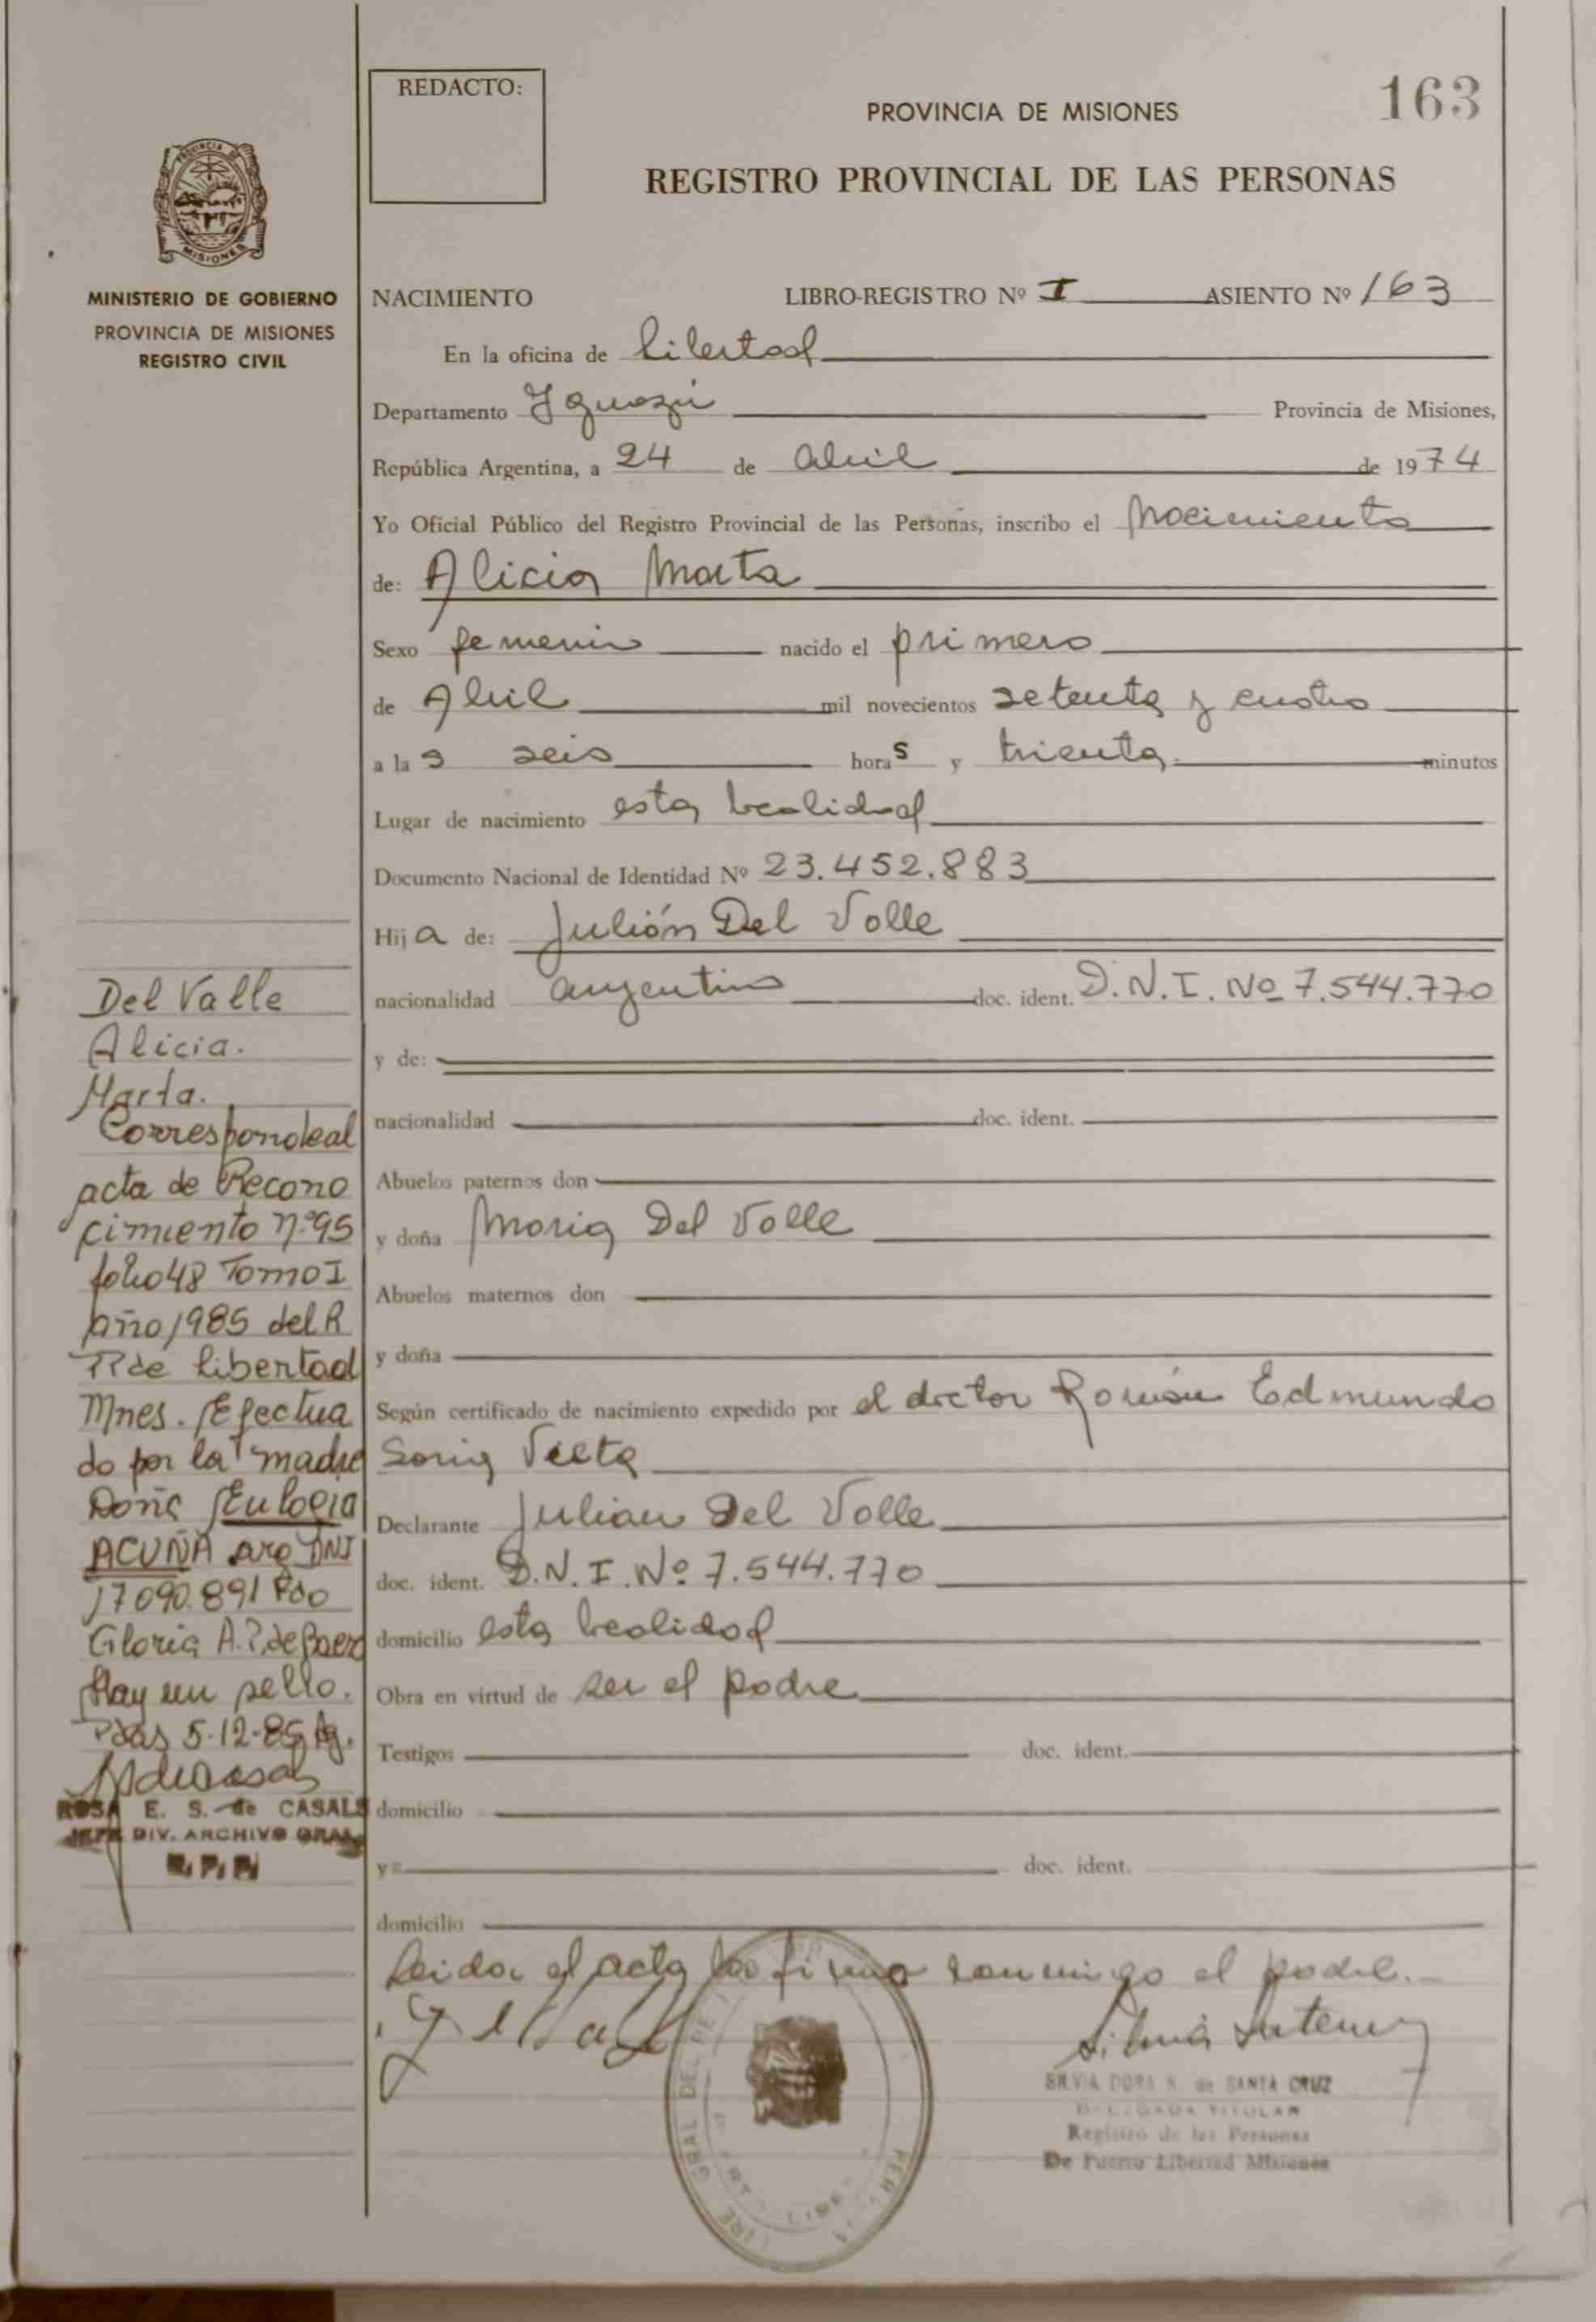 REDACTO:
163
PROVINCIA DE MISIONES
REGISTRO PROVINCIAL DE LAS PERSONAS
PROVINCIA DE
MISIONES
MINISTERIO DE GOBIERNO
PROVINCIA DE MISIONES
REGISTRO CIVIL
NACIMIENTO LIBRO-REGISTRO Nº I ASIENTO Nº 163
En la oficina de Libertad
Departamento Iguazú Provincia de Misiones,
República Argentina, a 24 de abril de 1974
Yo Oficial Público del Registro Provincial de las Personas, inscribo el Nacimiento
de: Alicia Marta
Sexo femenino nacido el primero
de Abril mil novecientos setenta y cuatro
a las seis horas y trienta minutos
Lugar de nacimiento esta localidad
Documento Nacional de Identidad Nº 23.452.883
Hija de: Julián Del Valle
nacionalidad argentino doc. ident. D.N.I. Nº 7.544.770
y de:
nacionalidad doc. ident.
Abuelos paternos don
y doña Maria Del Valle
Abuelos maternos don
y doña
Según certificado de nacimiento expedido por el doctor Román Edmundo
Soria
Declarante Julian Del Valle
doc. ident. D.N.I. Nº 7.544.770
domicilio esta localidad
Obra en virtud de ser el padre
Testigos doc. ident.
domicilio
y doc. ident.
domicilio
Leida el acta la firma conmigo el padre.-
SILVIA DORA S. de SANTA CRUZ
DELEGADA TITULAR
Registro de las Personas
De Puerto Libertad Misiones
Del Valle
Alicia.
Marta.
Corresponde al
acta de Recono
cimiento nº 95
folio 48 Tomo I
año 1985 del R
P de Libertad
Mnes. Efectua
do por la madre
Doña Eulogia
ACUÑA arg DNI
17090.891 Fdo
Gloria A. P. de Baez
Hay un sello.
Pdas 5-12-85
ROSA E. S. de CASALS
JEFE DIV. ARCHIVO GRAL.
R.P.P.